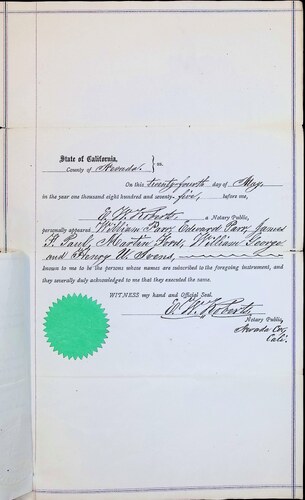 State of California, } ss.
County of Nevada.
On this twenty-fourth day of May.
in the year one thousand eight hundred and seventy-five, before me,
E. W. Roberts. a Notary Public,
personally appeared William Parr, Edward Parr, James
F. Paul, Martin Ford, William George
and Henry W. Ivens,
known to me to be the persons whose names are subscribed to the foregoing instrument, and
they severally duly acknowledged to me that they executed the same.
WITNESS my hand and Official Seal.
E. W. Roberts
Notary Public,
Nevada Co,
Cali.